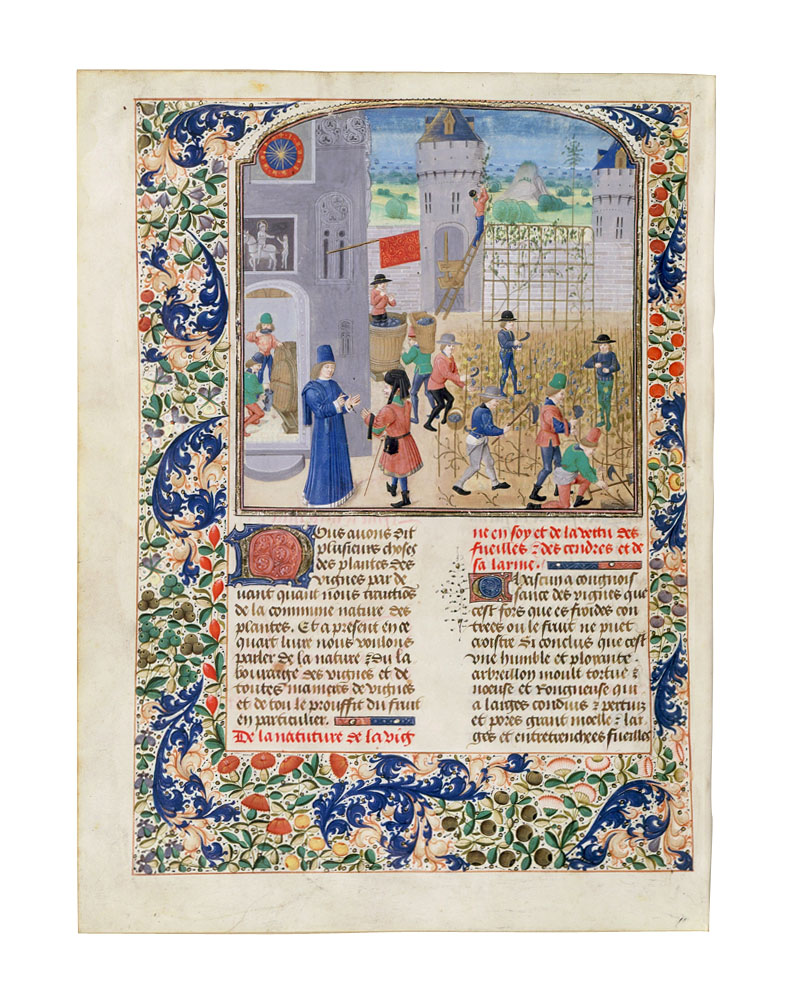 Nous auons dit
plusieurs choses
des plantes des
vignes par de
uant quant nous traitties
de la commune nature des
plantes. Et a present en ce
quart liure nous voulons
parler de la nature & du la
bouraige des vignes et de
toutes manieres de vignes
et de tou le prouffit du fruit
en particulier.
De la natuture de la vig
ne en soy et de la vertu des
fueilles & des cendres et de
sa larme.
Chascun a congnois
sance des vignes que
cest fors que es froides con
trees ou le fruit ne puet
croistre Si conclus que cest
vne humble et plorante
arbreillon moult tortue &
noeuse et Rongneuse qui
a larges conduis & pertuiz
et pores grant moelle & lar
ges et entretrenchees fueilles